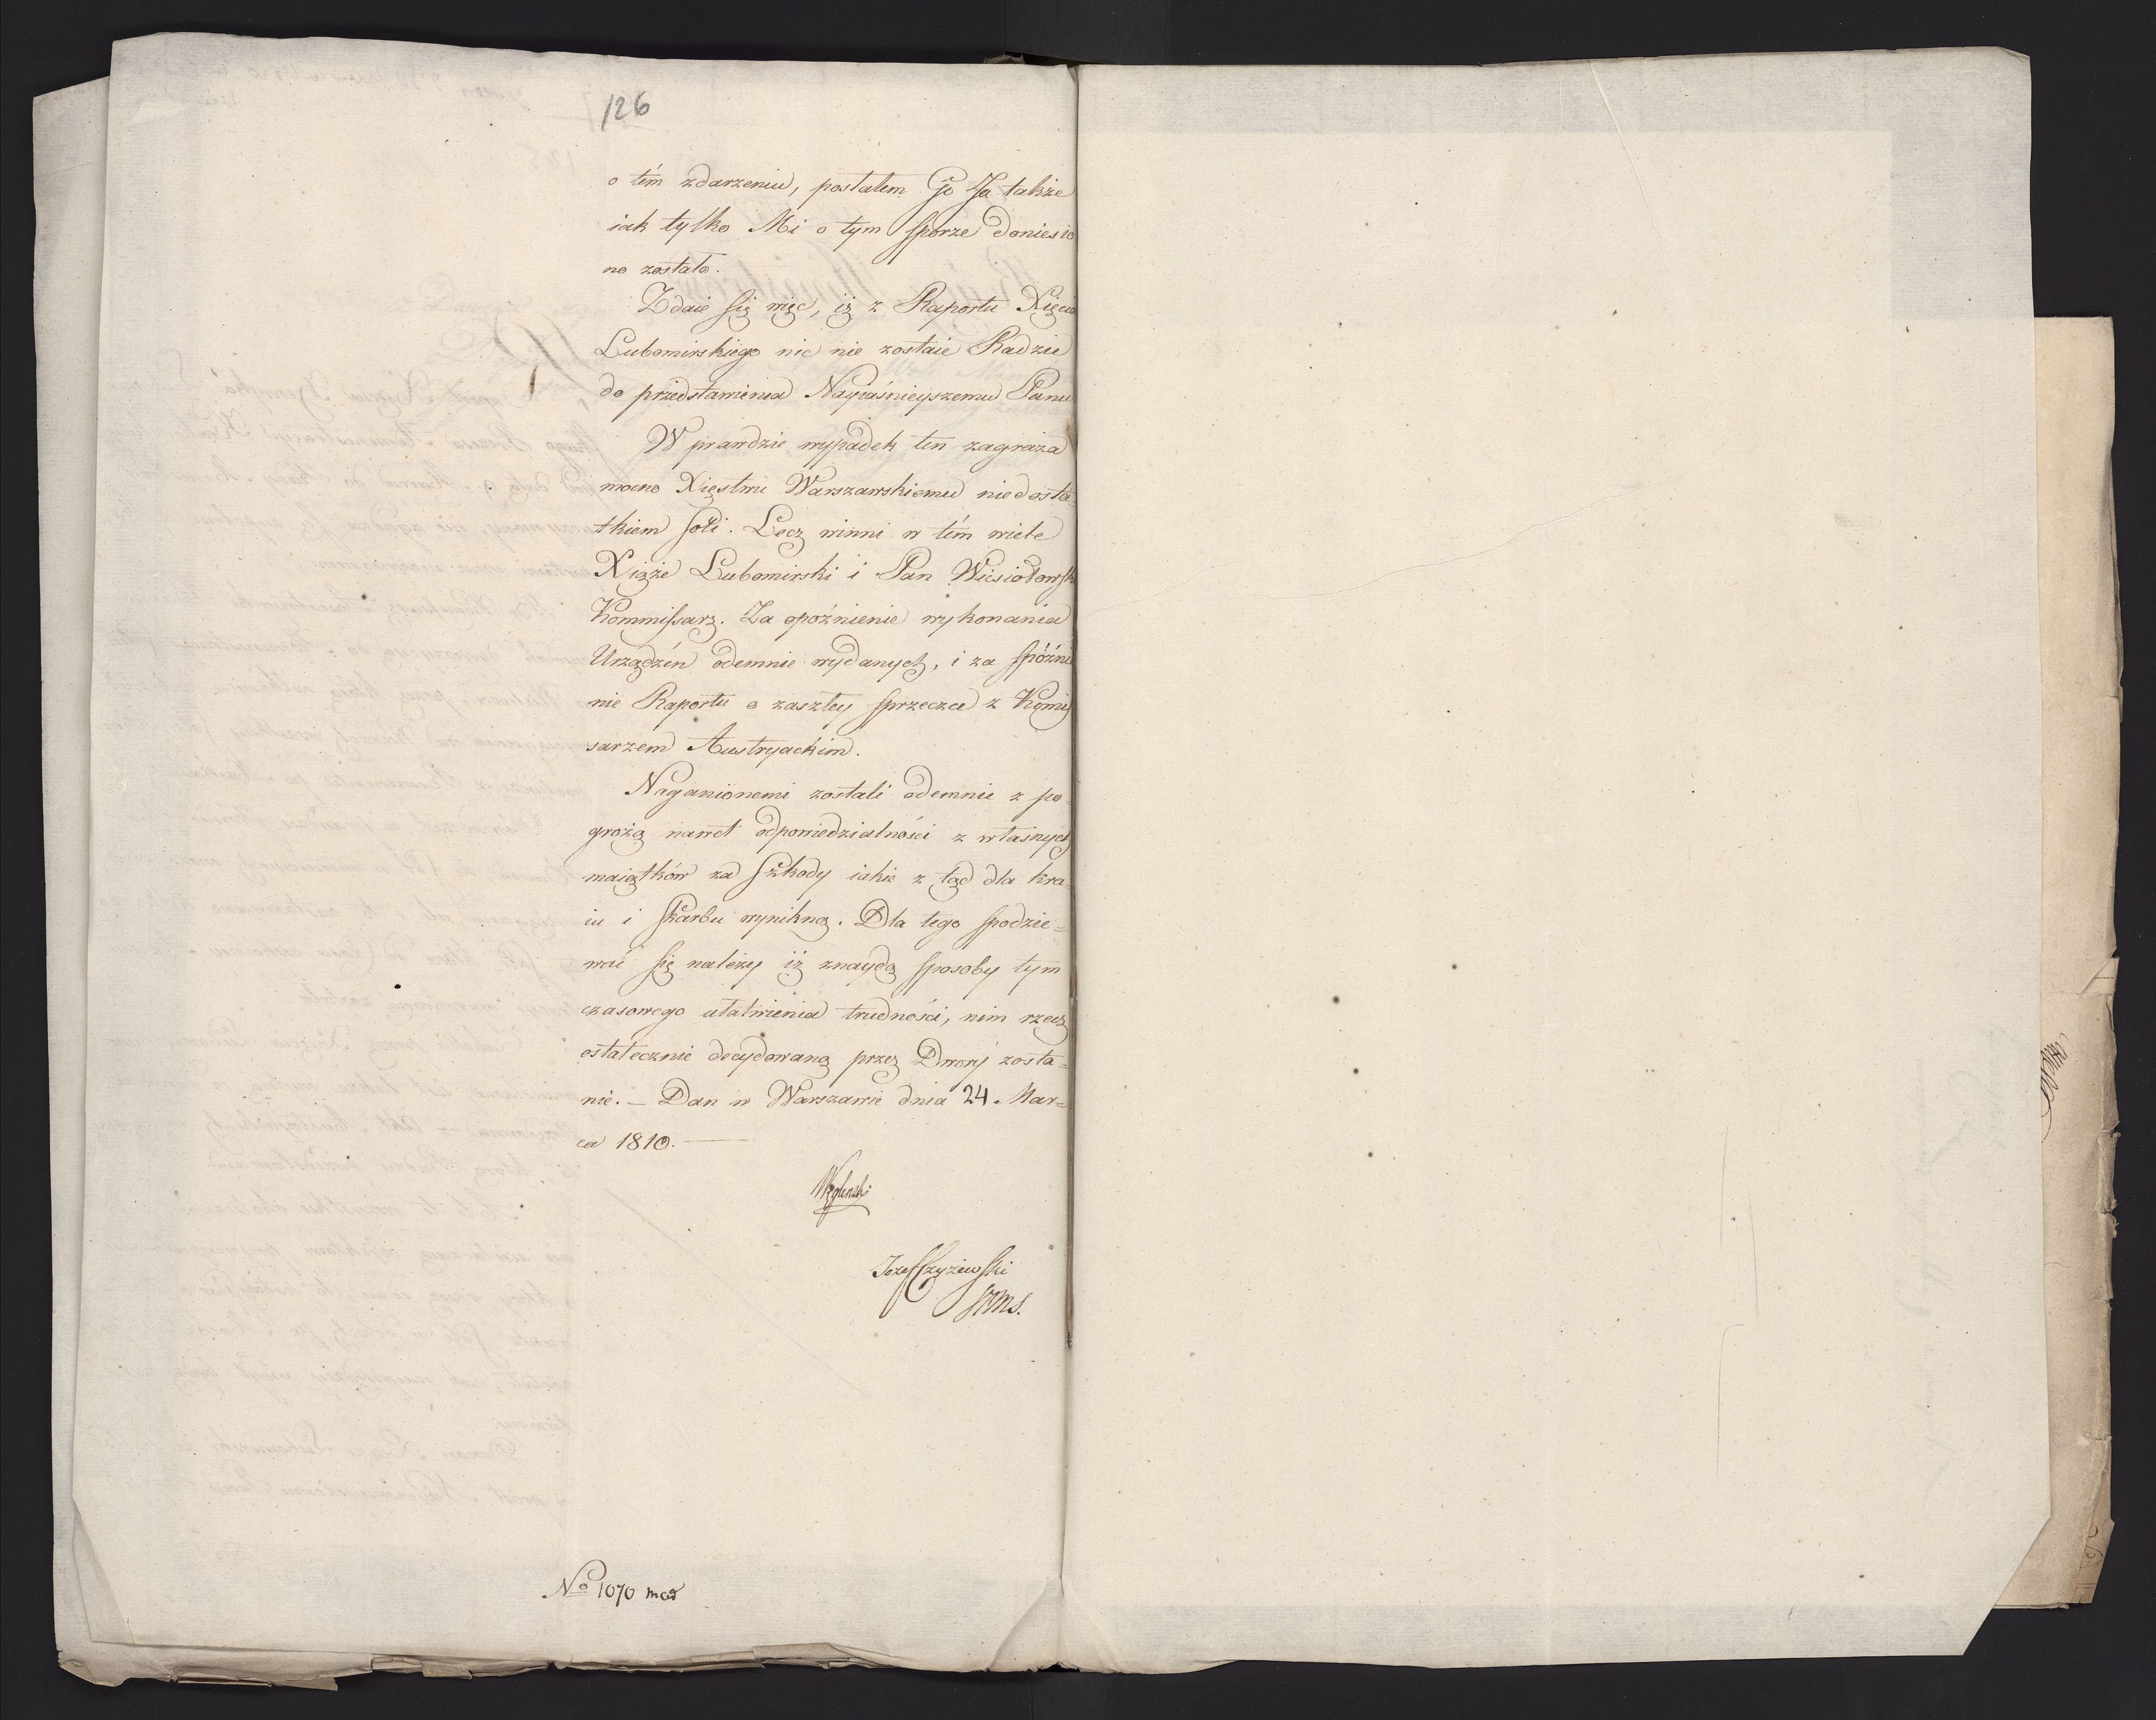 126
o tém zdarzeniu, posłałem Go Ja także
iak tylko Mi o tym sporze doniesio
no zostało.
Zdaie się więc, iż z Raportu Xięcia
Lubomirskiego nic nie zostaie Radzie
do przedstawienia Nayiaśnieyszemu Panu
W prawdzie wypadek ten zagraża
mocno Xięstwu Warszawskiemu niedosta-
tkiem soli. Lecz winni w tém wiele
Xiąże Lubomirski i Pan Wiesiołowski
Kommissarz. Za opóźnienie wykonania
Urządzeń odemnie wydanych, i za spóźnie
nie Raportu o zaszłey sprzeczce z Kommis
sarzem Austryackim.
Naganionemi zostali odemnie z po-
grożą nawet odpowiedzialności z własnych
maiątków za Szkody iakie z tąd dla kra-
iu i skarbu wynikną. Dla tego spodzie=
wać się należy iż znaydą sposoby tym
czasowego ułatwienia trudności, nim rzecz
ostatecznie decydowaną przez Dwory zosta=
nie. – Dan w Warszawie dnia 24. Mar=
ca 1810. —
Węgleński
Jozef Czyżewski
N<sup>o</sup> 1070